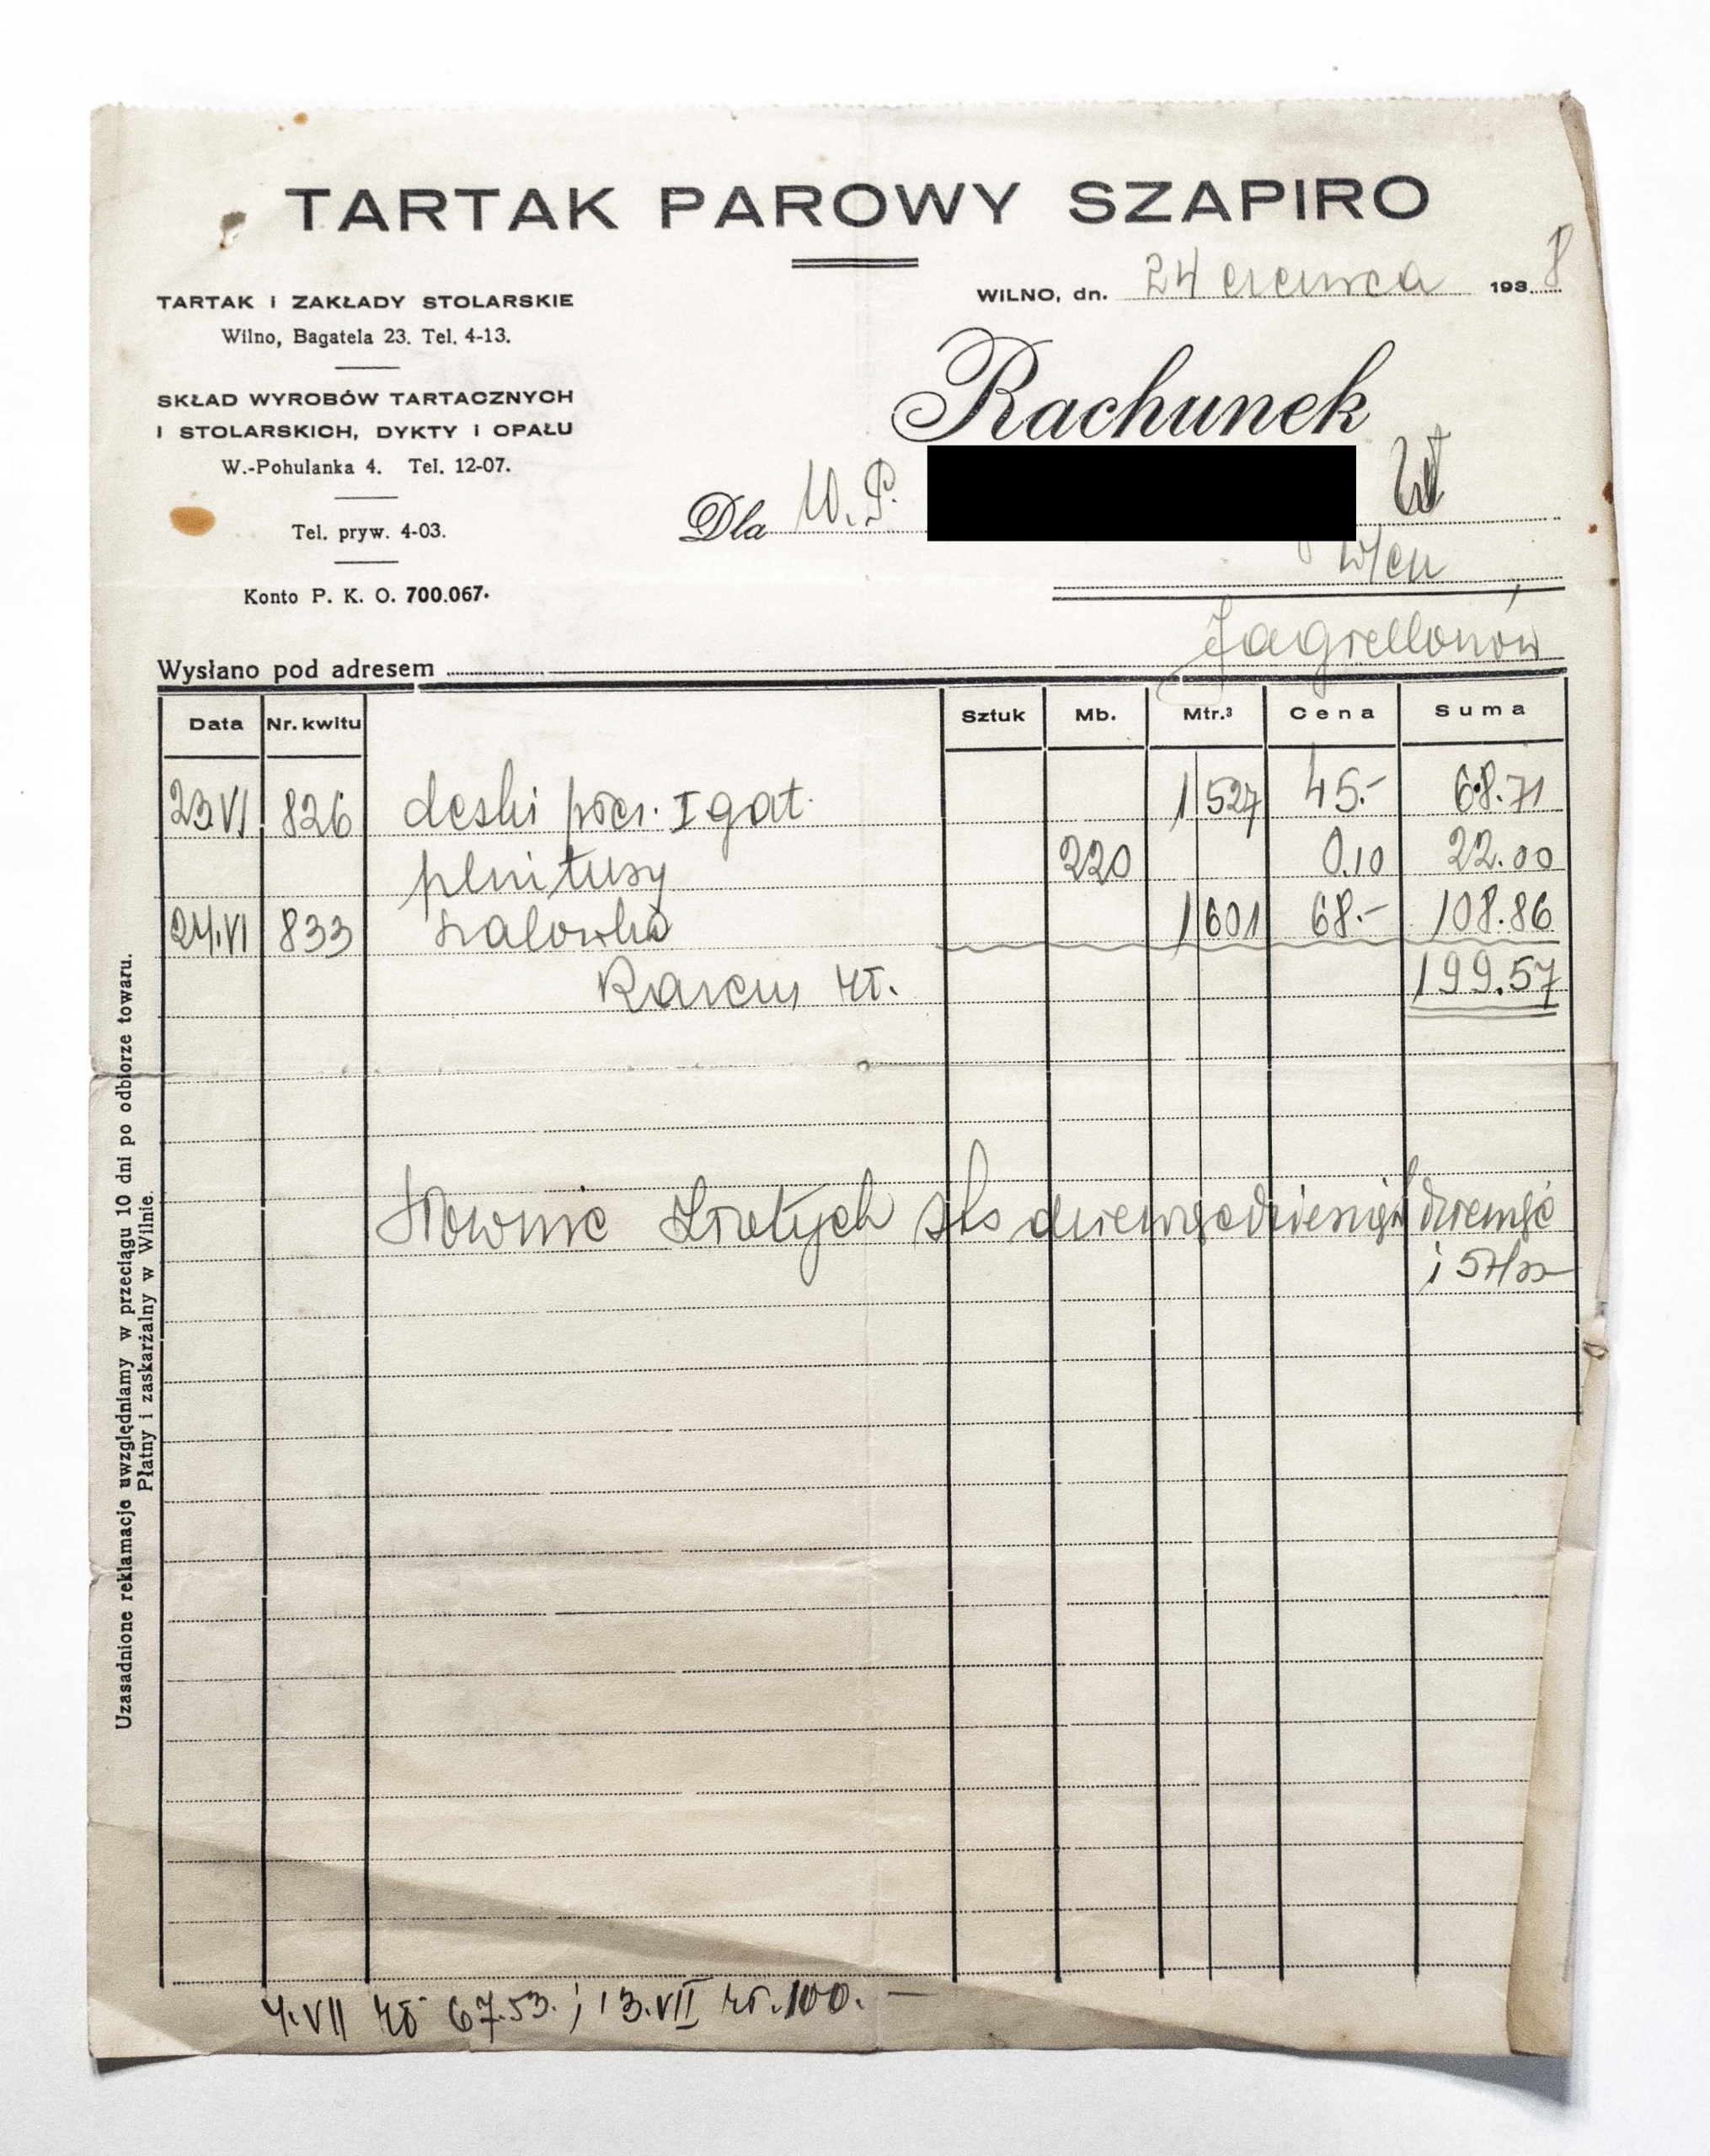 TARTAK PAROWY SZAPIRO
TARTAK i ZAKŁADY STOLARSKIE
Wilno, Bagatela 23. Tel. 4-13.
SKŁAD WYROBÓW TARTACZNYCH
I STOLARSKICH, DYKTY i OPAŁU
W.-Pohulanka 4. Tel. 12-07.
Tel. pryw. 4-03.
Konto P. K. O. 700.067.
WILNO, dn. 24 czerwca 1938
Rachunek
Dla W. P.
Jagiellonów
Wysłano pod adresem
Data Nr. kwitu Sztuk Mb. Mtr.³ Cena Suma
23.VI 826 deski I gat. 1 527 45.- 68.71
plintusy 220 0.10 22.00
24.VI 833 szalówka 1 601 68.- 108.86
Razem zł. 199.57
Słownie Złotych sto dziewięćdziesiąt dziewięć
i 57/00
Uzasadnione reklamacje uwzględniamy w przeciągu 10 dni po odbiorze towaru.
Płatny i zaskarżalny w Wilnie.
4.VII zł 67.53.; 13.VII zł. 100.—